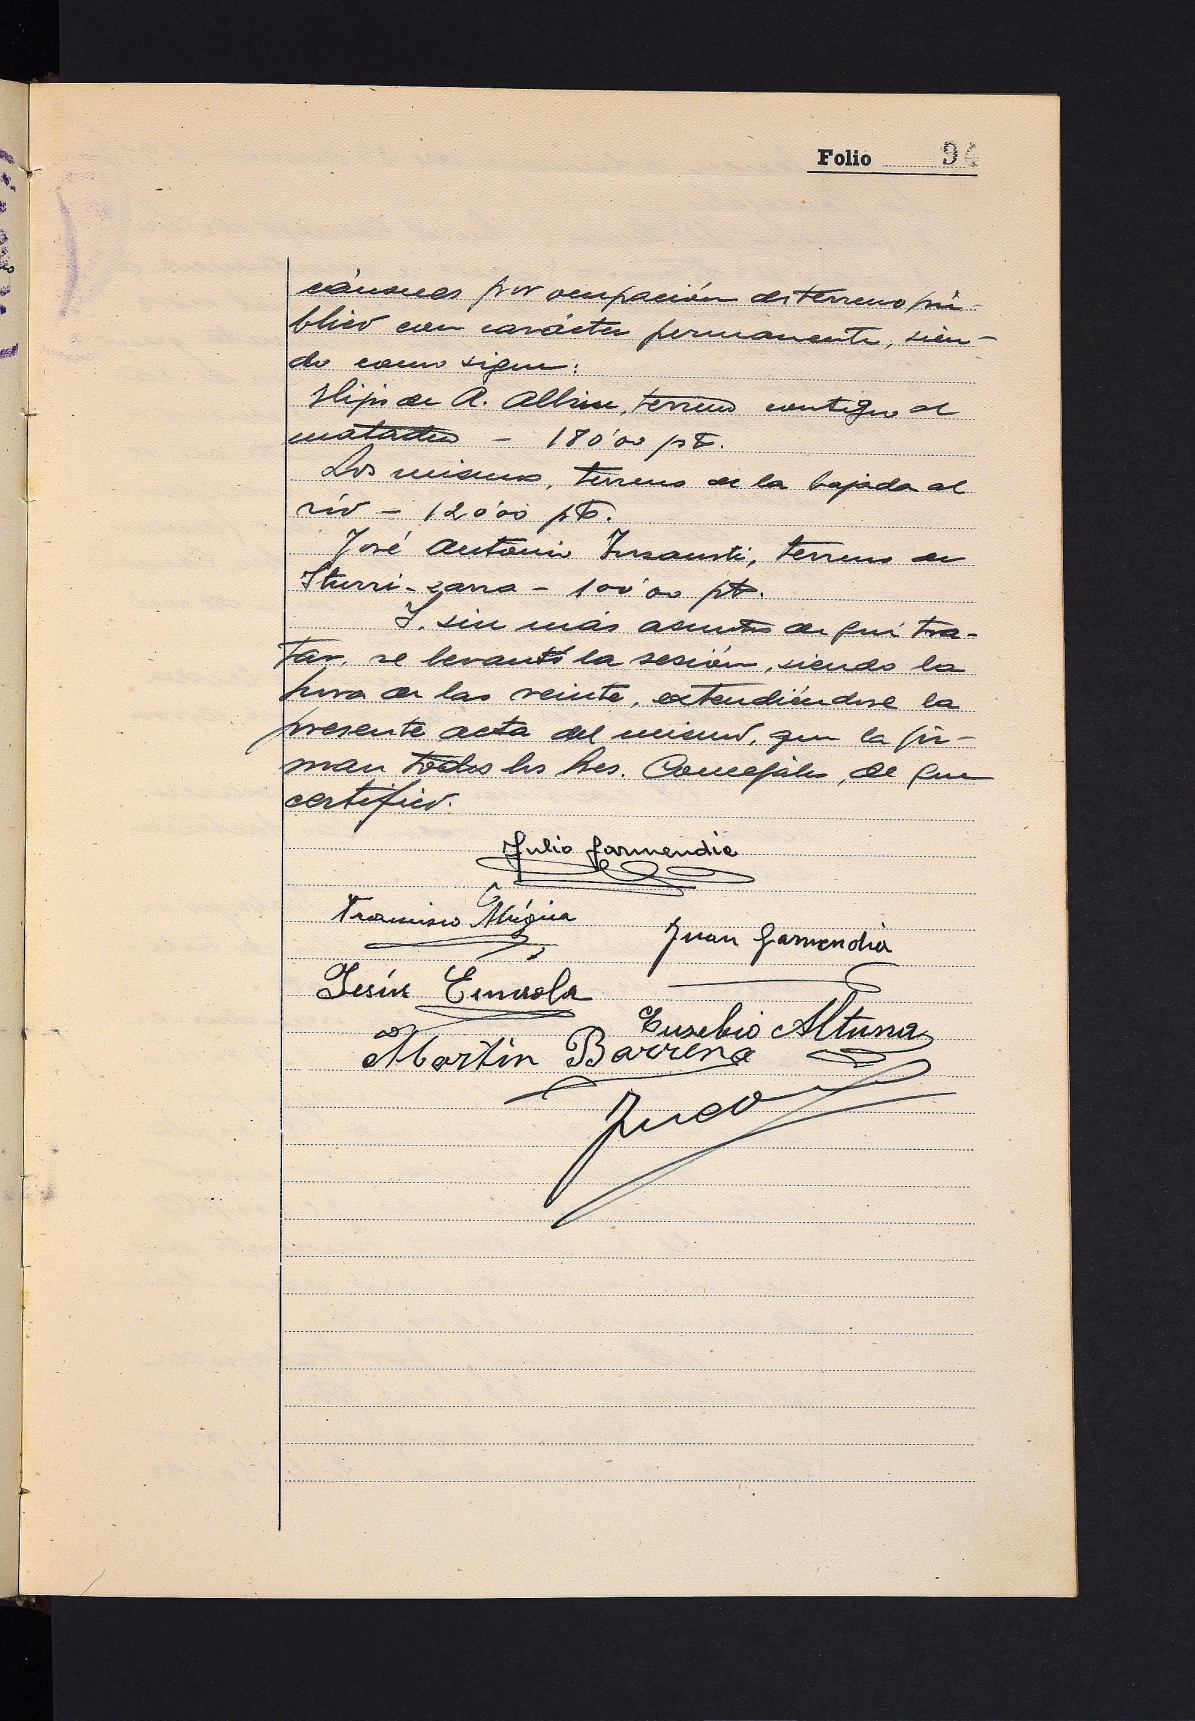 Folio 94
cánones por ocupación de terreno pú-
blico con carácter permanente, sien-
do como sigue:
Hijos de A. Albisu, terreno contiguo al
matadero - 180'00 pts.
Los mismos, terreno de la bajada al
río - 120'00 pts.
José Antonio Insausti, terreno de
Iturri-zarra - 100'00 pts.
Y, sin más asuntos de qué tra-
tar, se levantó la sesión, siendo la
hora de las veinte, extendiéndose la
presente acta del mismo, que la fir-
man todos los Sres. Concejales, de que
certifico.
Julio Garmendia
Francisco Múgica
Juan Garmendia
Jesús
Eusebio Altuna
Martín Barrena